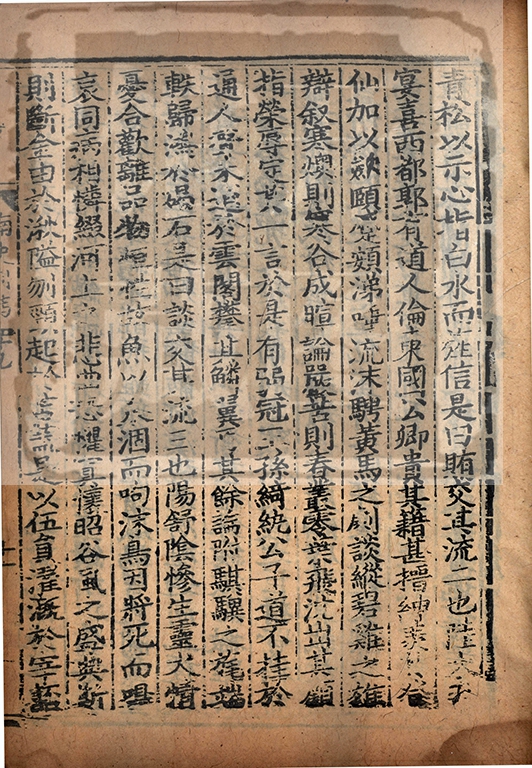 青松以示心指白水而旌信是曰賄交其流二也陸大
宴喜西都郭有道人倫東國公卿貴其籍甚搢紳羨
仙加以斂頤蹙頞涕唾流沫騁黃馬之劇談縱碧雞之雄
辯叙寒燠則寒谷成暄論嚴苦則春叢零葉飛沉出其顧
指榮辱定其一言於是有弱冠王孫綺紈公子道不挂於
通人聲未遒於雲閣攀其鱗翼丐其餘論附騏驥之旄端
軼歸鴻於碣石是曰談交其流三也陽舒陰慘生靈大情
憂合歡離品物恒性故魚以泉涸而呴沫鳥因將死而鳴
哀同病相憐綴河上之悲曲恐懼寘懷昭谷風之盛典斯
則斷金由於湫隘刎頸起於苫蓋是以伍員濯溉於宰嚭